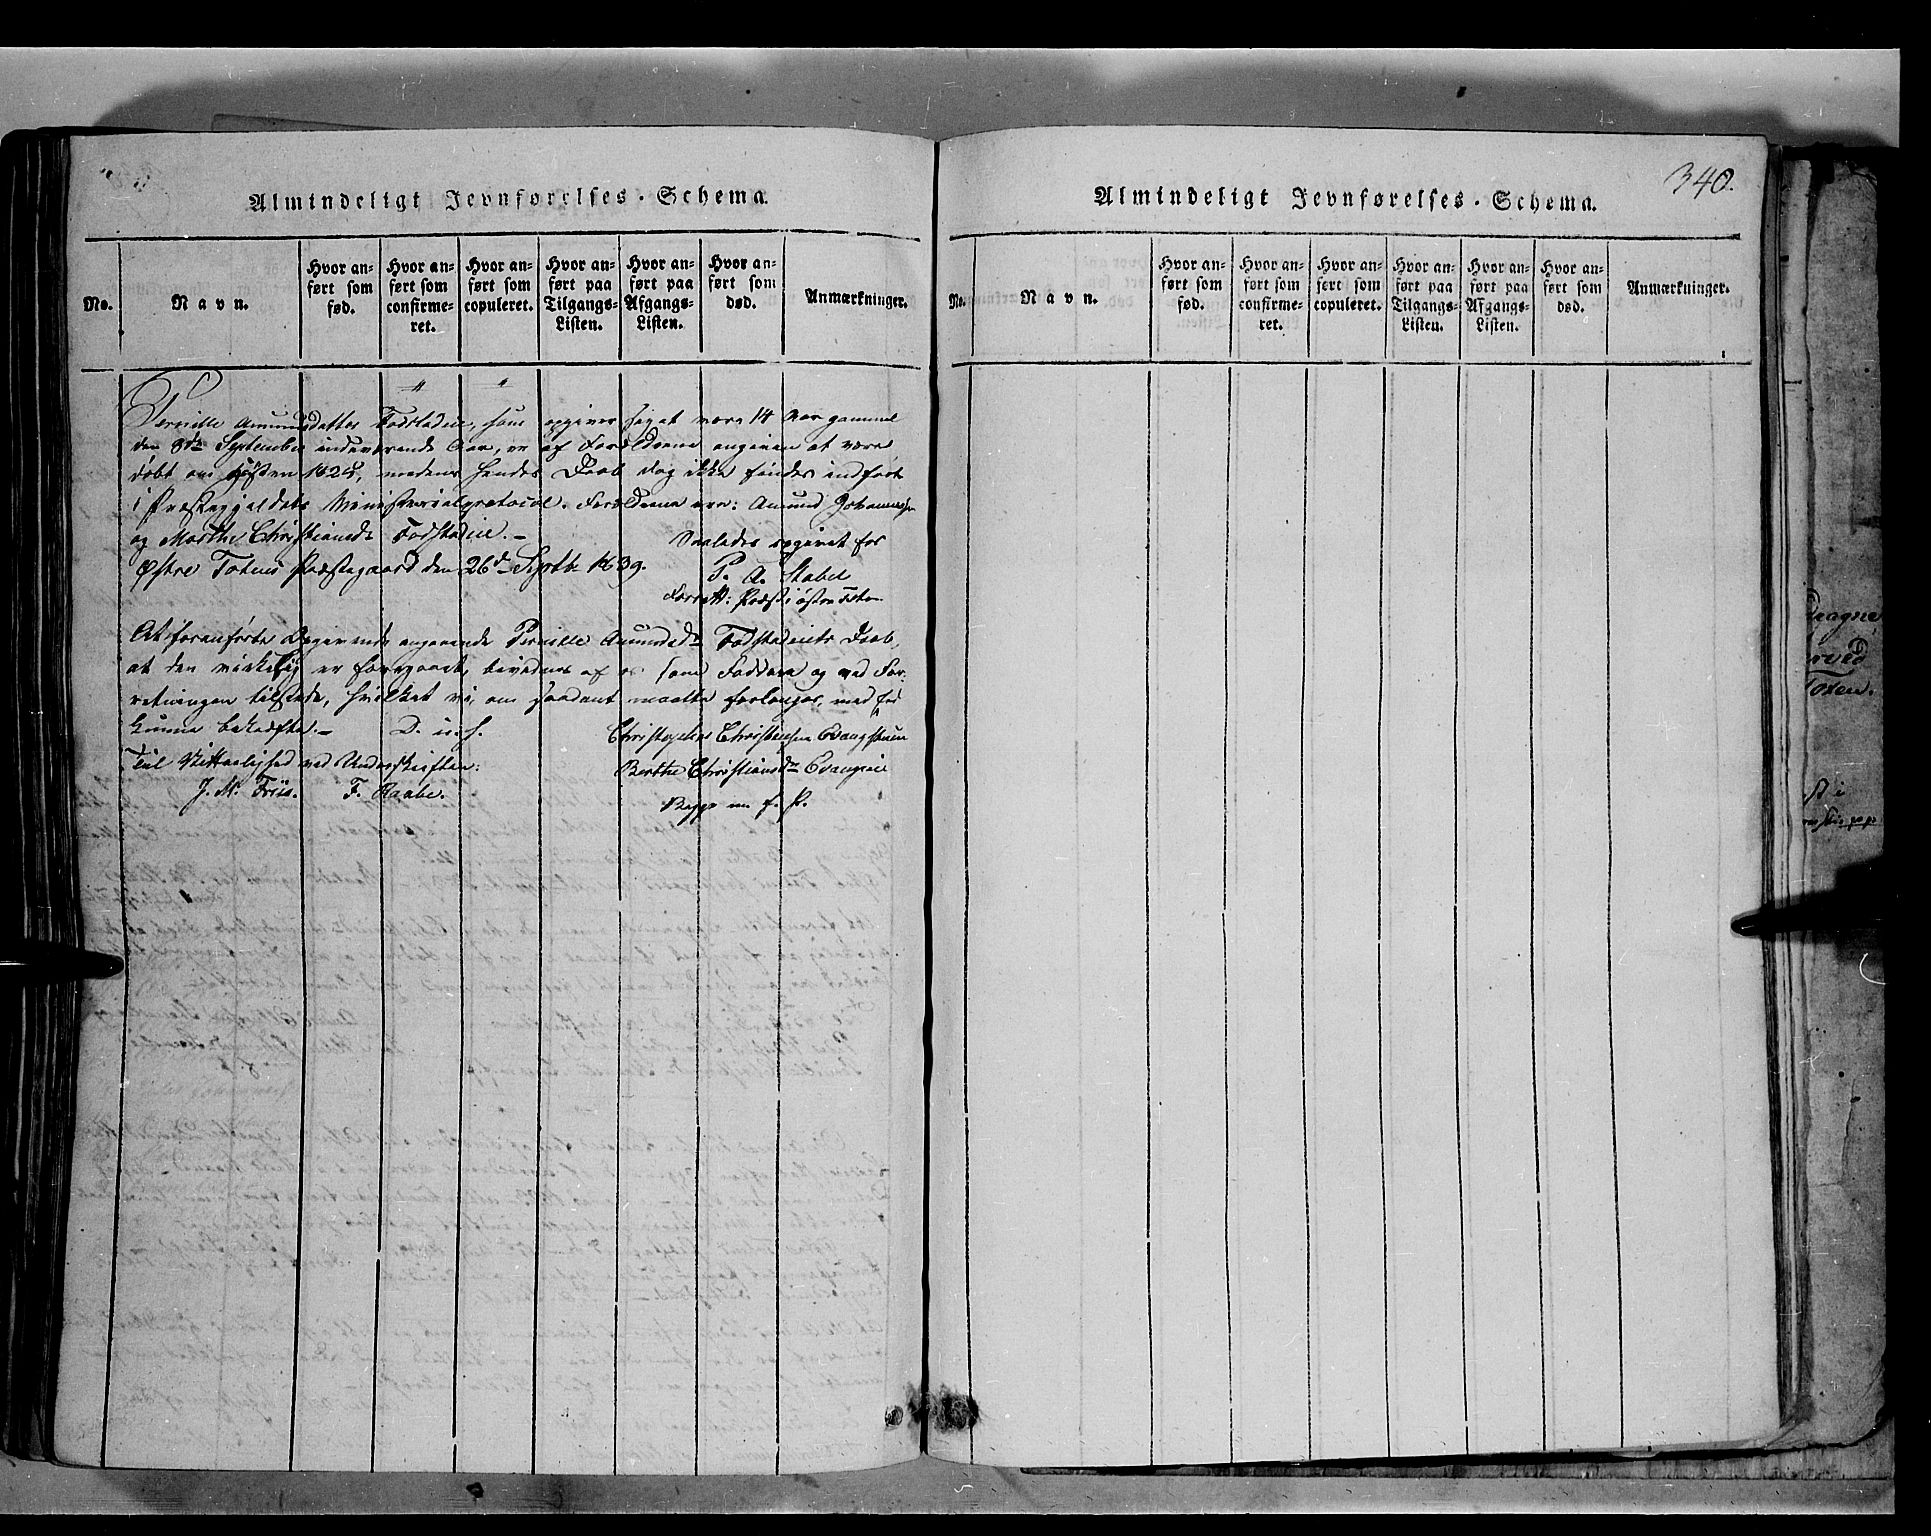 Almindeligt Jevnførelses-Schema.
No.
Navn.
Hvor an-
ført som
fød.
Hvor an-
ført som
confirme-
ret.
Hvor an-
ført som
copuleret.
Hvor an-
ført paa
Tilgangs-
Listen.
Hvor an-
ført paa
Afgangs-
Listen.
Hvor an-
ført som
død.
Anmærkninger.
Pernille Amunsdatter Fodstadeie, som opgiver sig at være 14 Aar gammel
den 8de September indeværende Aar, er af Forældrene angiven at være
døbt om Høsten 1825, medens hendes Daab dog ikke findes indført
i Præstegjeldets Ministerialprotocol. Forældrene ere: Amund Johannessen
og Marthe Christiansdr Fodstadeie.-
Saaledes opgivet for
Østre Totens Præstegaard den 26de Septbr 1839.
P. A. Stabel
Forrett: Præst i østre Toten
At foranførte Opgivende angaaende Pernille Amundsdr Fodstadeiets Daab,
at den virkelig er foregaaet, bevidnes af os som Faddere og ved For-
retningen tilstede, hvilket vi, om saadant maatte forlanges, med Eed
kunne bekræfte.- D. u. s.
Christopher Christensen Evangstuen
Til Vitterlighed ved Underskriften:
Berthe Christiansdr Evangeie
J. M. Friis. F. Raabe.
Begge m. f. P.
340.
Almindeligt Jevnførelses-Schema.
No.
Navn.
Hvor an-
ført som
fød.
Hvor an-
ført som
confirme-
ret.
Hvor an-
ført som
copuleret.
Hvor an-
ført paa
Tilgangs-
Listen.
Hvor an-
ført paa
Afgangs-
Listen.
Hvor an-
ført som
død.
Anmærkninger.